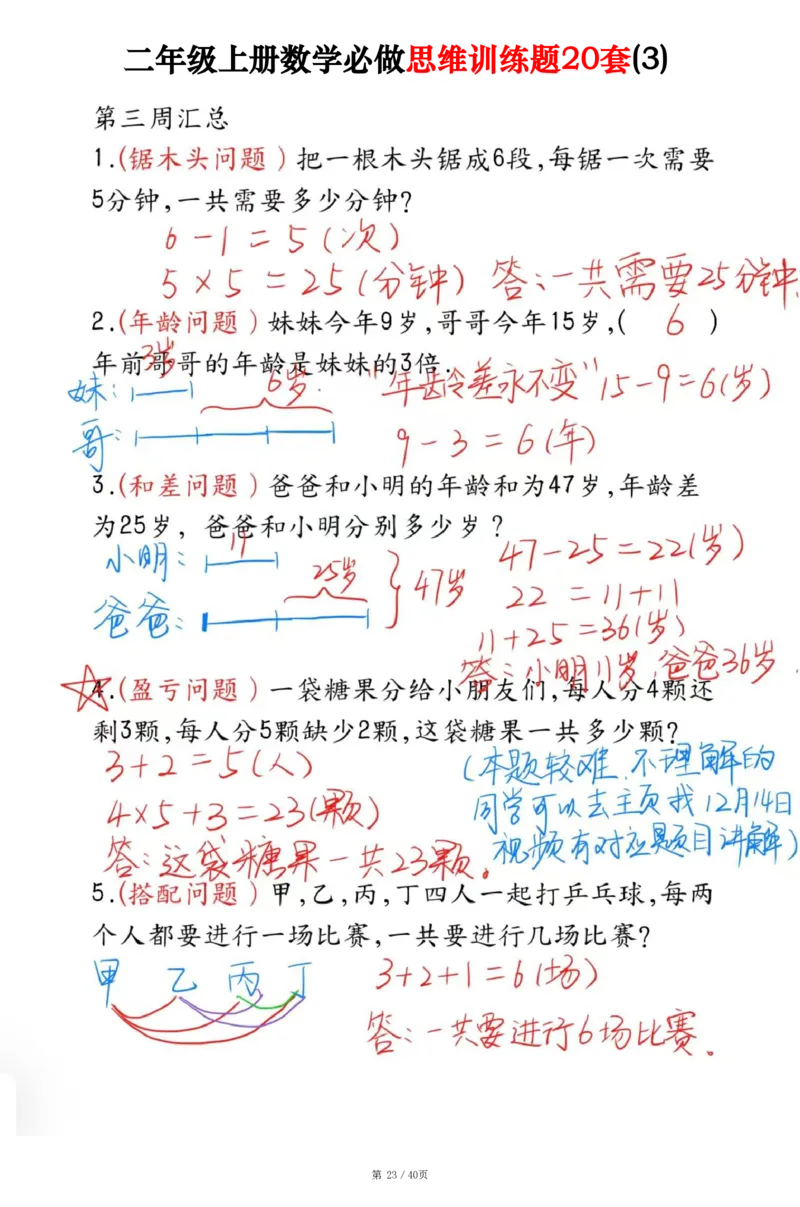 二年级上册数学必做思维训练题20套(3)
第三周汇总
1.(锯木头问题)把一根木头锯成6段,每锯一次需要
5分钟,一共需要多少分钟?
6-1=5(次)
5×5=25(分钟) 答:一共需要25分钟.
2.(年龄问题)妹妹今年9岁,哥哥今年15岁,( 6 )
年前哥哥的年龄是妹妹的3倍.
3岁
妹: 6岁. "年龄差永不变" 15-9=6(岁)
哥: 9-3=6(年)
3.(和差问题)爸爸和小明的年龄和为47岁,年龄差
为25岁, 爸爸和小明分别多少岁?
11
小明: 47-25=22(岁)
25岁 47岁 22=11+11
爸爸: 11+25=36(岁)
答:小明11岁,爸爸36岁.
4.(盈亏问题)一袋糖果分给小朋友们,每人分4颗还
剩3颗,每人分5颗缺少2颗,这袋糖果一共多少颗?
3+2=5(人) (本题较难、不理解的
4×5+3=23(颗) 同学可以去主页找12月14日
答:这袋糖果一共23颗。 视频有对应题目讲解)
5.(搭配问题)甲,乙,丙,丁四人一起打乒乓球,每两
个人都要进行一场比赛,一共要进行几场比赛?
甲 乙 丙 丁 3+2+1=6(场)
答:一共要进行6场比赛。
第 23 / 40页